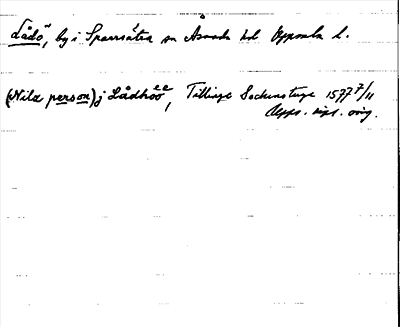 Lådö, by i Sparrsätra sn Åsunda hd Uppsala l.
(Nils person) j Lådhöö, Tillinge Sockenstuge 1577 7/11
Upps. orig.